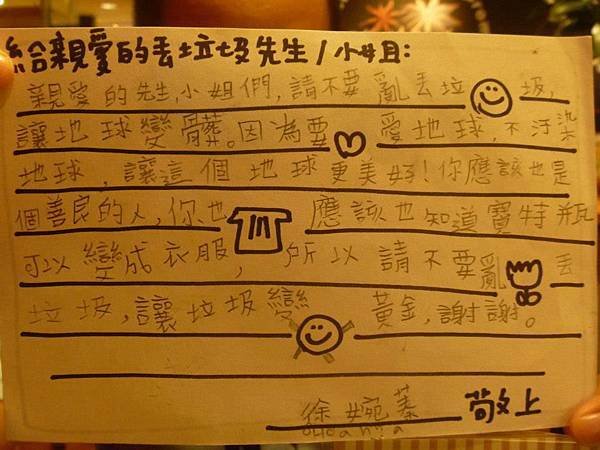 給親愛的丟垃圾先生/小姐:
親愛的先生,小姐們,請不要亂丟垃圾,
讓地球變髒。因為要愛地球,不汙染
地球,讓這個地球更美好!你應該也是
個善良的人,你也應該也知道寶特瓶
可以變成衣服,所以請不要亂丟
垃圾,讓垃圾變黃金,謝謝。
徐婉蓁 敬上